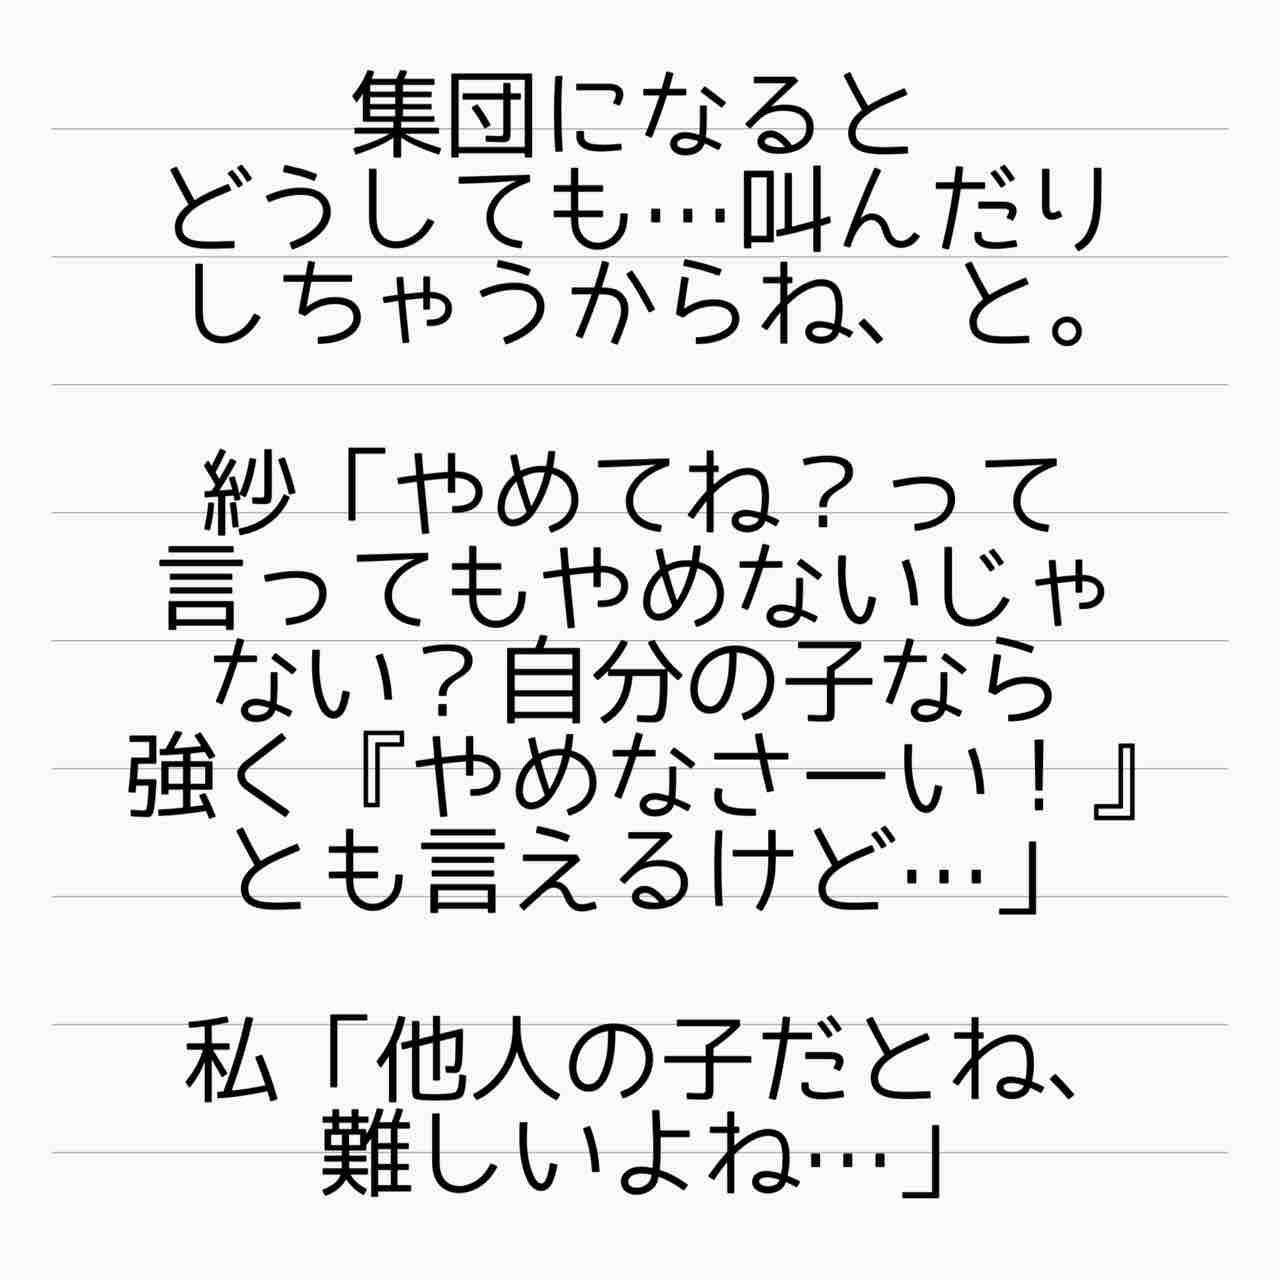 集団になると
どうしても…叫んだり
しちゃうからね、と。
紗「やめてね？って
言ってもやめないじゃ
ない？自分の子なら
強く『やめなさーい！』
とも言えるけど…」
私「他人の子だとね、
難しいよね…」